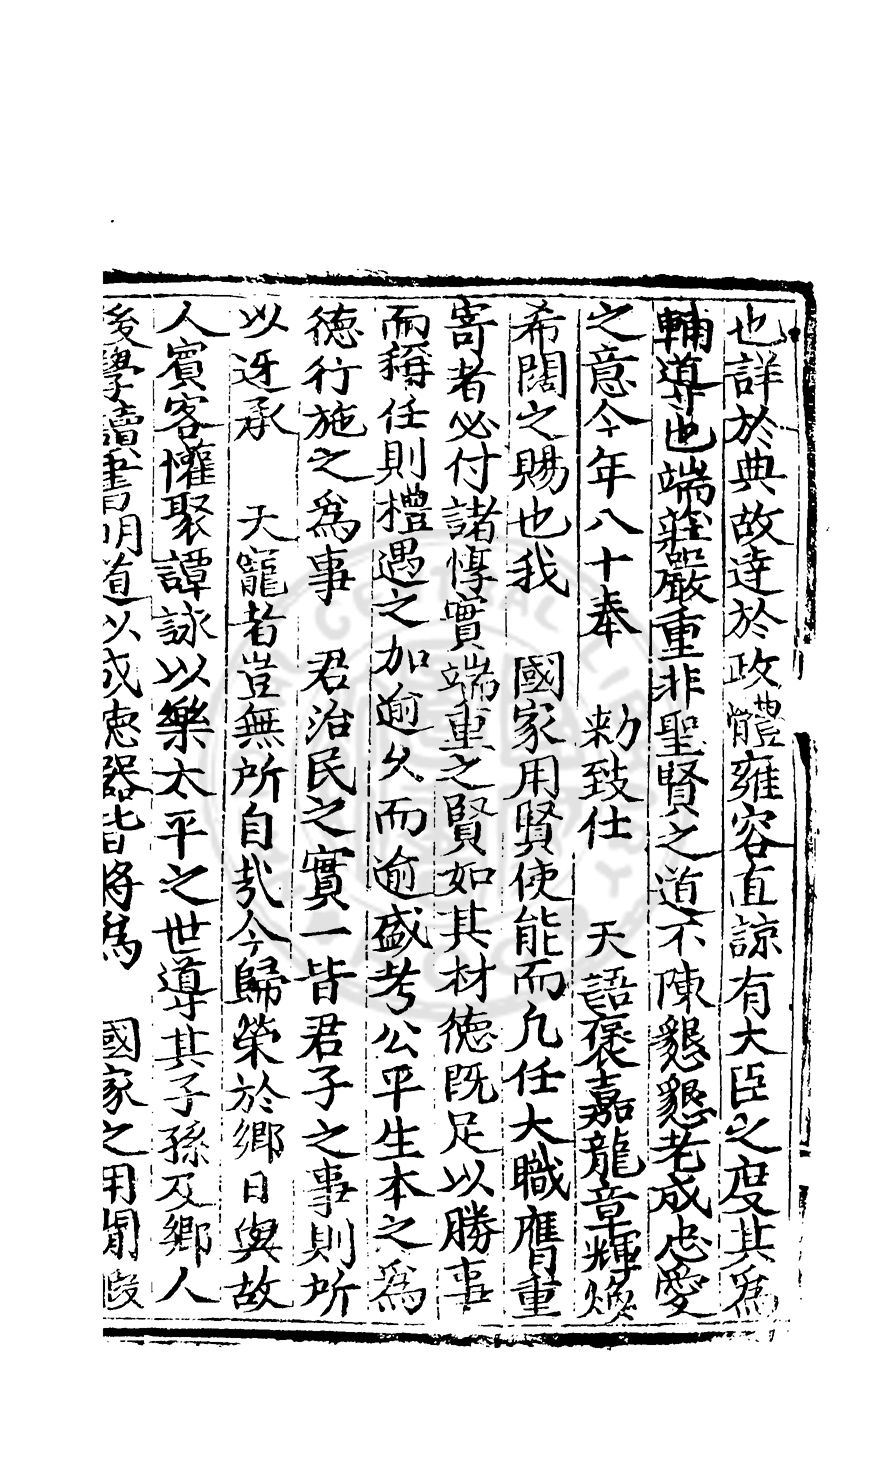 也詳於典故達於政體雍容直諒有大臣之度其為
輔導也端莊嚴重非聖賢之道不陳懇懇老成忠愛
之意今年八十奉　勑致仕　天語褒嘉龍章輝煥
希闊之賜也我　國家用賢使能而凢任大職膺重
寄者必付諸惇實端重之賢如其材徳既足以勝事
而稱任則禮遇之加逾久而逾盛考公平生本之為
徳行施之為事　君治民之實一皆君子之事則所
以迓承　天寵者豈無所自㢤今歸榮於鄉日與故
人賓客懽聚譚詠以樂太平之世導其子孫及鄉人
後學讀書明道以成徳器皆將為　國家之用閒暇